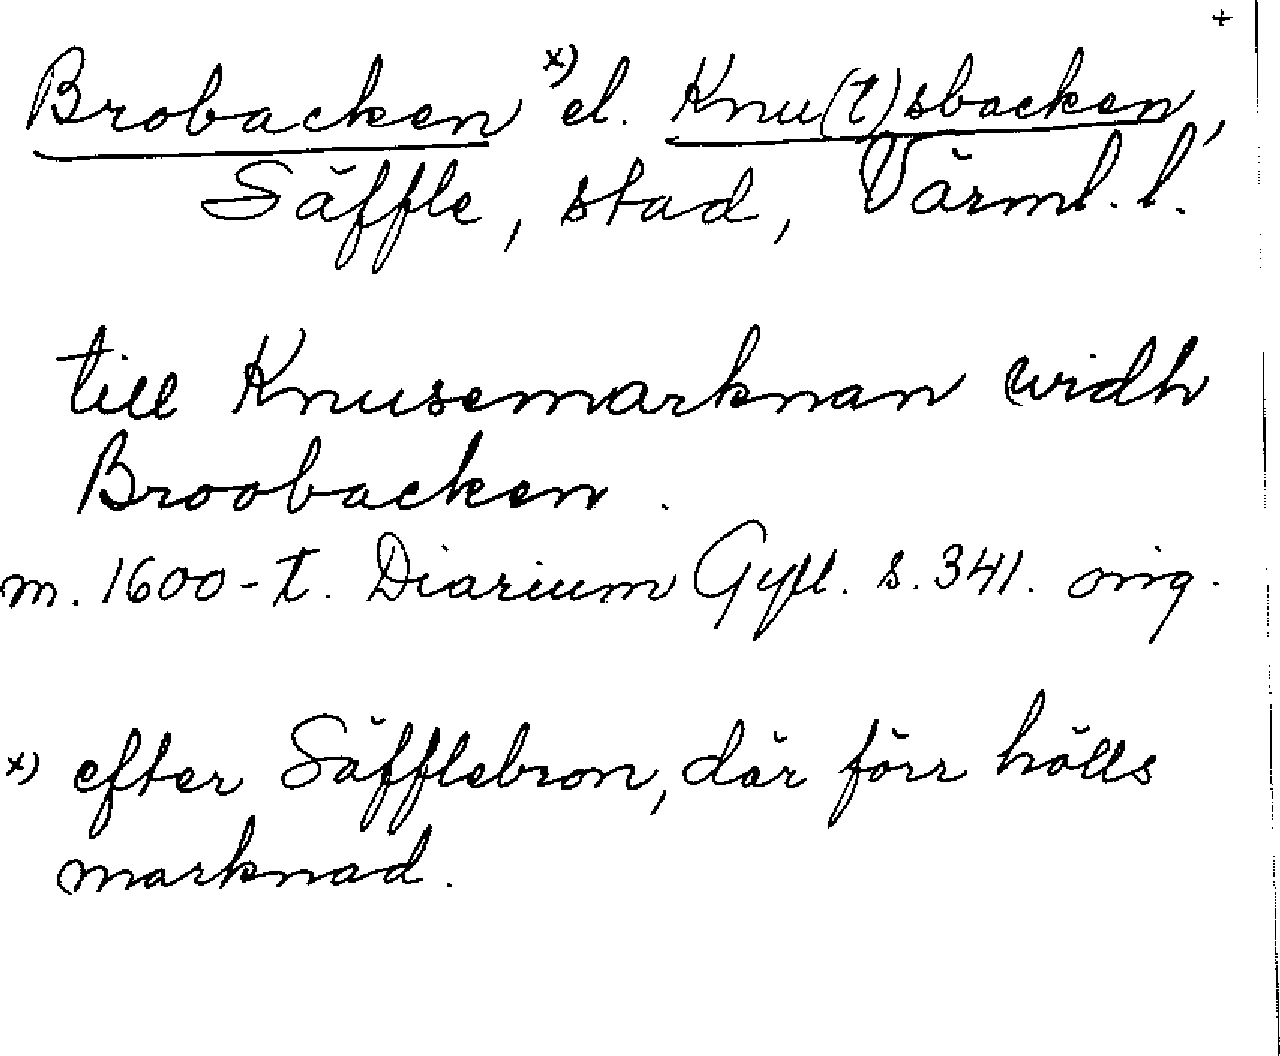 +
Brobacken x) el. Knu(t)sbacken,
Säffle, stad, Värml. l.
till Knusemarknan widh
Broobacken.
m. 1600-t. Diarium Gyll. s. 341. orig.
x) efter Säfflebron, där förr hölls
marknad.